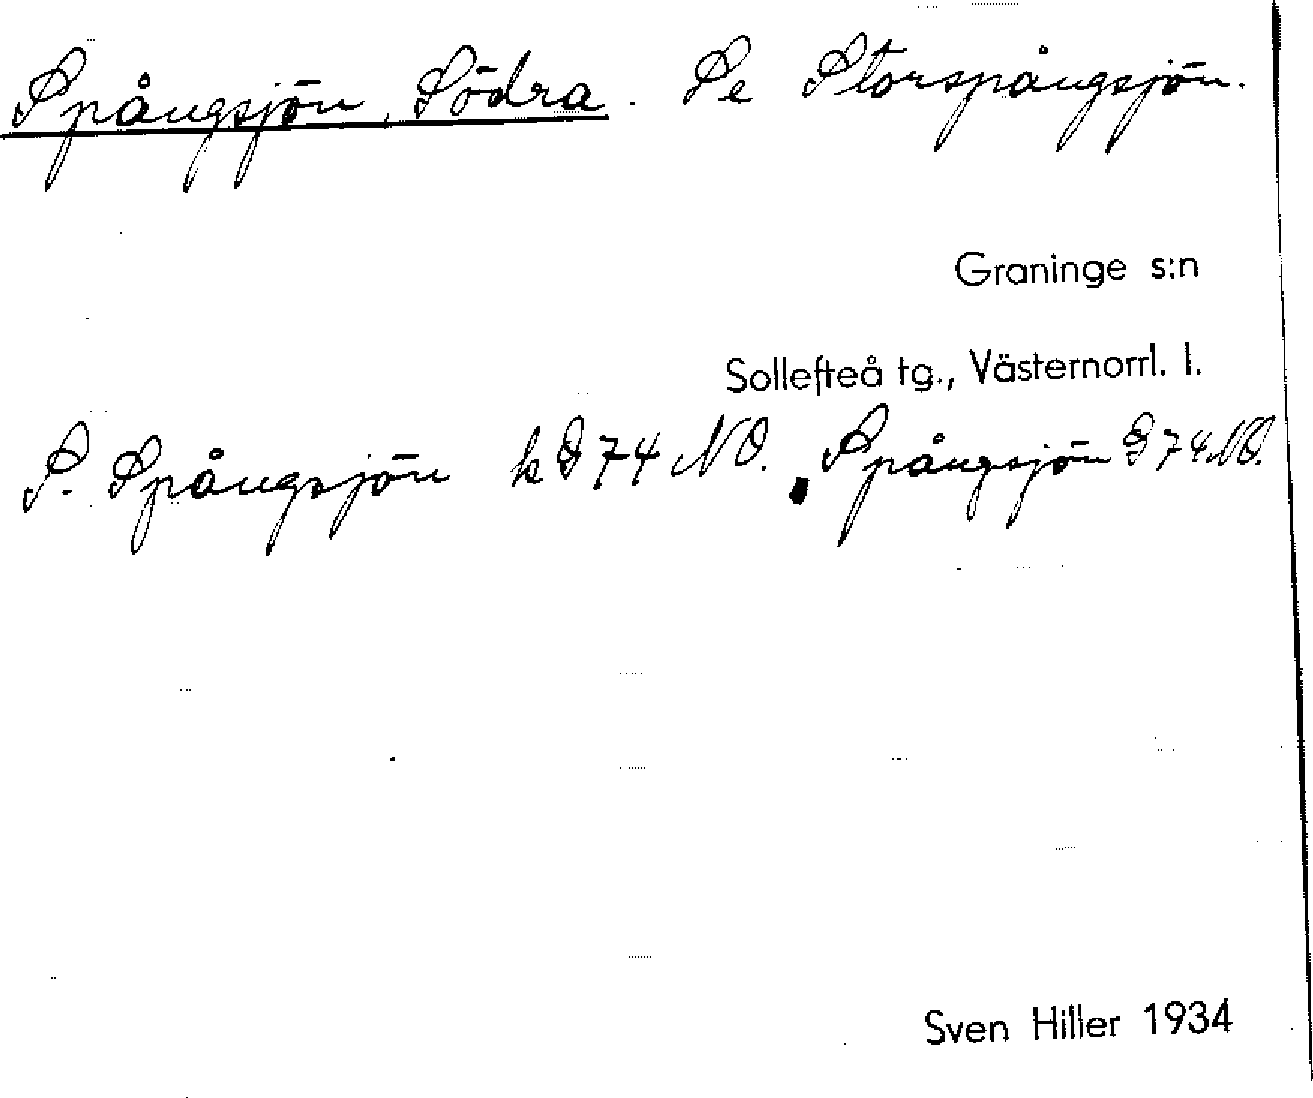 Spångsjön, Södra. Se Storspångsjön.
Graninge s:n
Sollefteå tg., Västernorrl. l.
S. Spångsjön k 74 NO. Spångsjön 74 NO.
Sven Hiller 1934